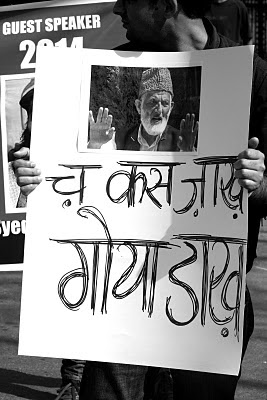 GUEST SPEAKER
2014
Syed
च़ कस ज़ाख़
गोया डाख़